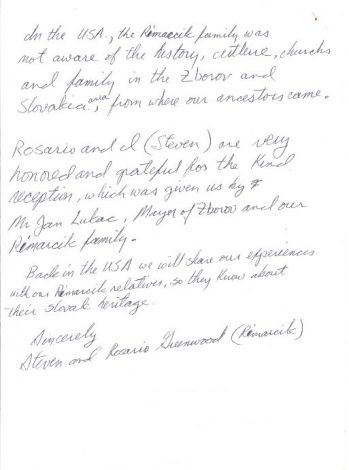 In the USA, the Rimarcik family was
not aware of the history, culture, churchs
and family in the Zborov and
Slovakia area, from where our ancestors came.
Rosario and I (Steven) are very
honored and grateful for the kind
reception, which was given us by
Mr Jan Lukac, Mayor of Zborov and our
Rimarcik family.
Back in the USA we will share our experiences
with our Rimarcik relatives, so they know about
their Slovak heritage.
Sincerely
Steven and Rosario Greenwood (Rimarcik)